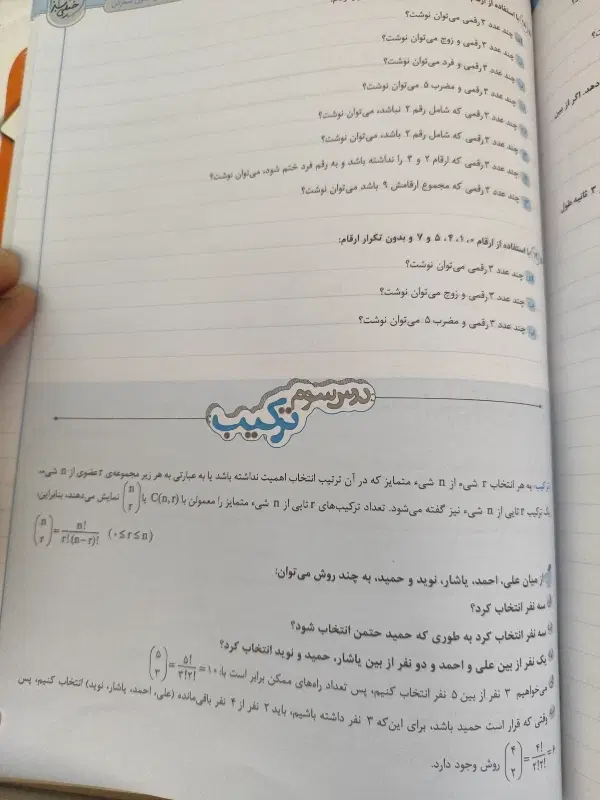 با استفاده از ارقام
چند عدد ۳ رقمی می‌توان نوشت؟
چند عدد ۳ رقمی و زوج می‌توان نوشت؟
چند عدد ۳ رقمی و فرد می‌توان نوشت؟
چند عدد ۳ رقمی و مضرب ۵ می‌توان نوشت؟
چند عدد ۳ رقمی که شامل رقم ۲ نباشد، می‌توان نوشت؟
چند عدد ۳ رقمی که شامل رقم ۲ باشد، می‌توان نوشت؟
چند عدد ۳ رقمی که ارقام ۲ و ۳ را نداشته باشد و به رقم فرد ختم شود، می‌توان نوشت؟
چند عدد ۳ رقمی که مجموع ارقامش ۹ باشد می‌توان نوشت؟
با استفاده از ارقام ۰، ۱، ۴، ۵ و ۷ و بدون تکرار ارقام:
چند عدد ۳ رقمی می‌توان نوشت؟
چند عدد ۳ رقمی و زوج می‌توان نوشت؟
چند عدد ۳ رقمی و مضرب ۵ می‌توان نوشت؟
درس سوم
ترکیب
ترکیب: به هر انتخاب r شیء از n شیء متمایز که در آن ترتیب انتخاب اهمیت نداشته باشد یا به عبارتی به هر زیر مجموعه‌ی r عضوی از n شیء،
یک ترکیب r تایی از n شیء نیز گفته می‌شود. تعداد ترکیب‌های r تایی از n شیء متمایز را معمولن با C(n,r) یا (n r) نمایش می‌دهند، بنابراین:
(n r) = n!/(r!(n-r)!) (۰≤r≤n)
از میان علی، احمد، یاشار، نوید و حمید، به چند روش می‌توان:
سه نفر انتخاب کرد؟
سه نفر انتخاب کرد به طوری که حمید حتمن انتخاب شود؟
یک نفر از بین علی و احمد و دو نفر از بین یاشار، حمید و نوید انتخاب کرد؟
می‌خواهیم ۳ نفر از بین ۵ نفر انتخاب کنیم، پس تعداد راه‌های ممکن برابر است با: (۵ ۳) = ۵!/(۳!۲!) = ۱۰
وقتی که قرار است حمید باشد، برای این‌که ۳ نفر داشته باشیم، باید ۲ نفر از ۴ نفر باقی‌مانده (علی، احمد، یاشار، نوید) انتخاب کنیم، پس
(۴ ۲) = ۴!/(۲!۲!) = ۶ روش وجود دارد.